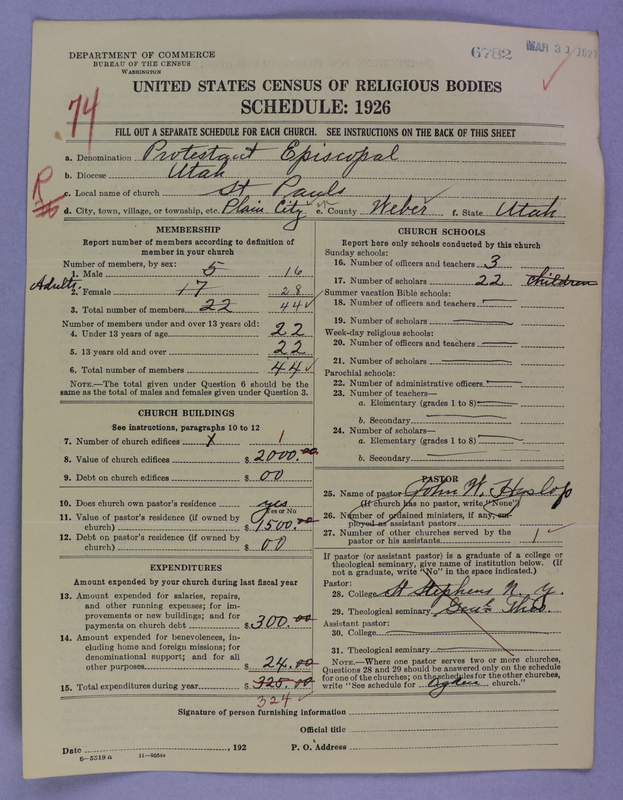 DEPARTMENT OF COMMERCE
BUREAU OF THE CENSUS
WASHINGTON
6782
MAR 31 1927
UNITED STATES CENSUS OF RELIGIOUS BODIES
SCHEDULE: 1926
74
FILL OUT A SEPARATE SCHEDULE FOR EACH CHURCH. SEE INSTRUCTIONS ON THE BACK OF THIS SHEET
a. Denomination Protestant Episcopal
b. Diocese Utah
R
c. Local name of church St Pauls
d. City, town, village, or township, etc. Plain City e. County Weber f. State Utah
MEMBERSHIP
Report number of members according to definition of member in your church
Number of members, by sex:
1. Male 5 16
Adults
2. Female 17 28
3. Total number of members 22 44
Number of members under and over 13 years old:
4. Under 13 years of age 22
5. 13 years old and over 22
6. Total number of members 44
NOTE.—The total given under Question 6 should be the same as the total of males and females given under Question 3.
CHURCH BUILDINGS
See instructions, paragraphs 10 to 12
7. Number of church edifices 1
8. Value of church edifices $ 2000.00
9. Debt on church edifices $ 00
10. Does church own pastor's residence yes
Yes or No
11. Value of pastor's residence (if owned by church) $ 1500.00
12. Debt on pastor's residence (if owned by church) $ 00
EXPENDITURES
Amount expended by your church during last fiscal year
13. Amount expended for salaries, repairs, and other running expenses; for improvements or new buildings; and for payments on church debt $ 300.00
14. Amount expended for benevolences, including home and foreign missions; for denominational support; and for all other purposes $ 24.00
15. Total expenditures during year $ 325.00
324
CHURCH SCHOOLS
Report here only schools conducted by this church
Sunday schools:
16. Number of officers and teachers 3
17. Number of scholars 22 children
Summer vacation Bible schools:
18. Number of officers and teachers
19. Number of scholars
Week-day religious schools:
20. Number of officers and teachers
21. Number of scholars
Parochial schools:
22. Number of administrative officers
23. Number of teachers—
a. Elementary (grades 1 to 8)
b. Secondary
24. Number of scholars—
a. Elementary (grades 1 to 8)
b. Secondary
PASTOR
25. Name of pastor John W. Hyslop
(If church has no pastor, write "None")
26. Number of ordained ministers, if any, employed as assistant pastors
27. Number of other churches served by the pastor or his assistants 1
If pastor (or assistant pastor) is a graduate of a college or theological seminary, give name of institution below. (If not a graduate, write "No" in the space indicated.)
Pastor:
28. College St Stephens N. Y.
29. Theological seminary Genl. Theo.
Assistant pastor:
30. College
31. Theological seminary
NOTE.—Where one pastor serves two or more churches, Questions 28 and 29 should be answered only on the schedule for one of the churches; on the schedules for the other churches, write "See schedule for Ogden church."
Signature of person furnishing information
Official title
Date , 192 P. O. Address
8-5518a